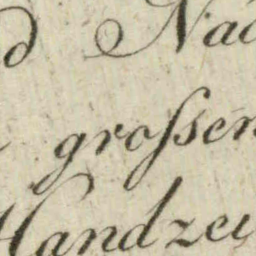 d Nac
grosser
Handzei